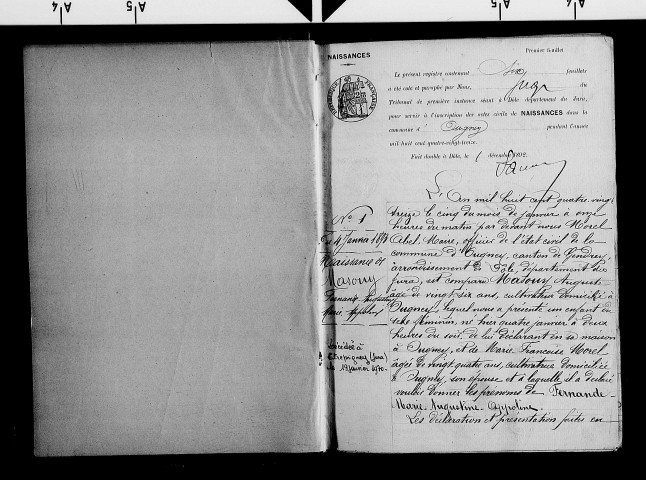 A 4
A 5
5 A
4 A
NAISSANCES
Premier feuillet
Le présent registre contenant Six feuillets
a été coté et paraphé par Nous, Juge du
Tribunal de première instance séant à Dôle département du Jura,
pour servir à l'inscription des actes civils de NAISSANCES dans la
commune d' Ougney pendant l'année
mil huit cent quatre-vingt-treize.
Fait double à Dôle, le 1 décembre 1892
N° 1
Du 4 Janvier 1893
Naissance de
Masouy
Fernande Augustine
Marie Appoline
Décédée à
le 19 janvier 1970.
L'An mil huit cent quatre vingt
treize le cinq du mois de janvier à onze
heures du matin par devant nous Morel
Abel, Maire, officier de l'état civil de la
commune d'Ougney, canton de Gendrey,
arrondissement de Dôle, département du
Jura, est comparu Masouy Auguste
âgé de vingt six ans, cultivateur domicilié à
Ougney, lequel nous a présenté un enfant du
sexe féminin, né hier quatre janvier à deux
heures du soir, de lui déclarant en sa maison
à Ougney, et de Marie Françoise Morel
âgée de vingt quatre ans, cultivatrice domiciliée
à Ougney, son épouse et à laquelle il a déclaré
vouloir donner les prénoms de Fernande
Marie Augustine Appoline.
Les déclaration et présentation faites en